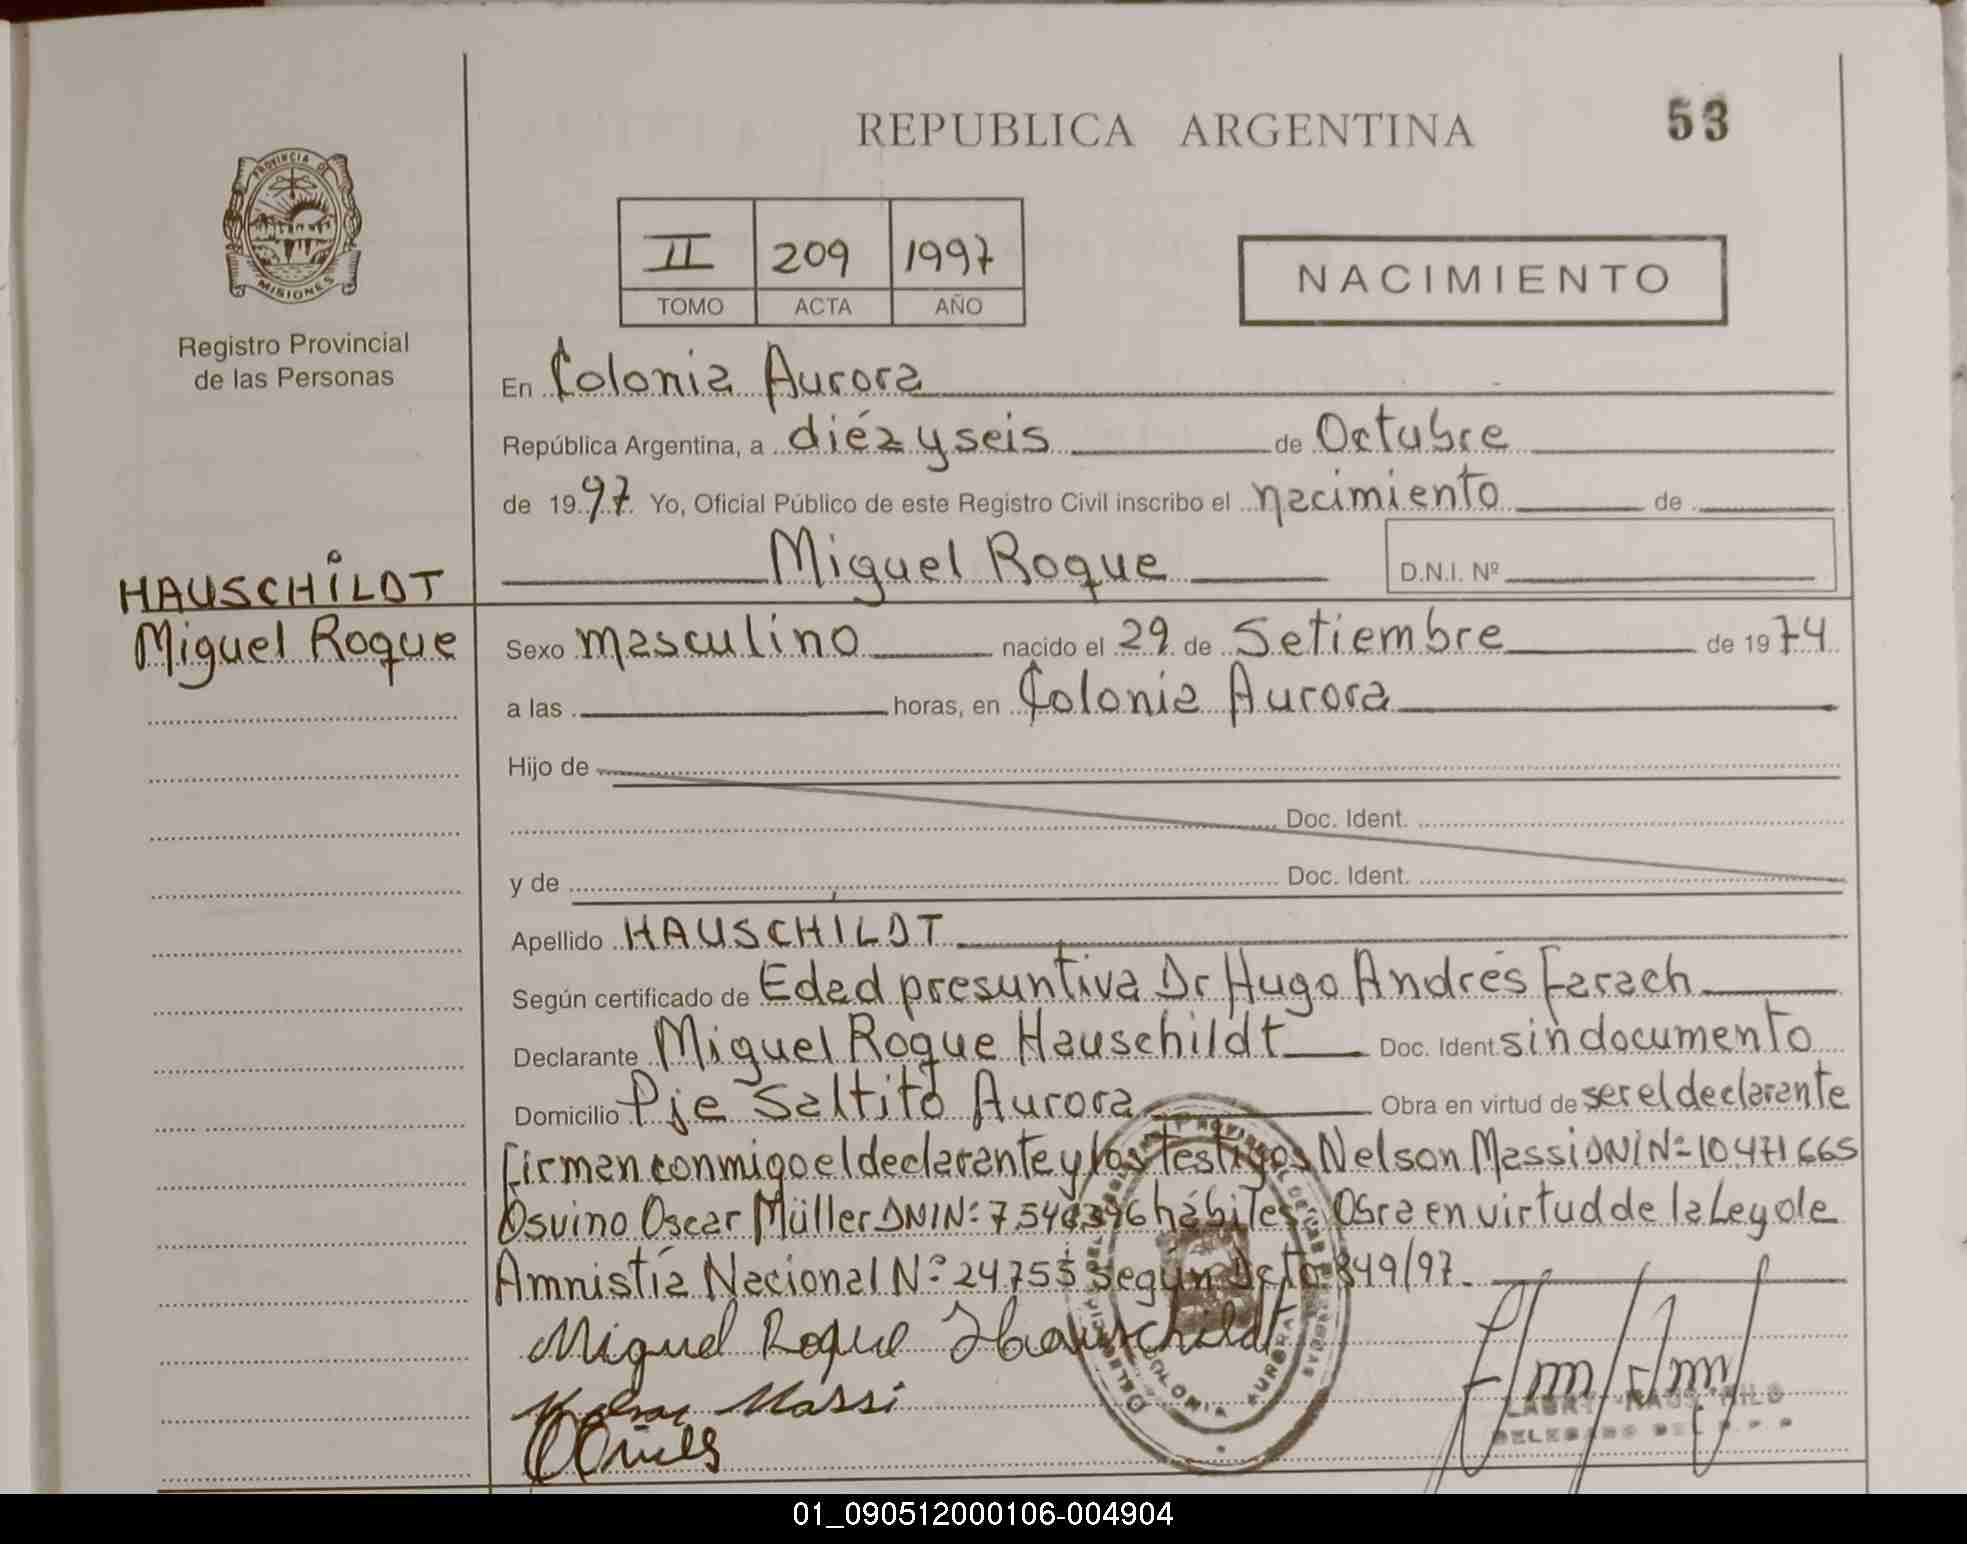 REPUBLICA ARGENTINA
53
PROVINCIA DE
MISIONES
Registro Provincial
de las Personas
II 209 1997
TOMO ACTA AÑO
NACIMIENTO
En Colonia Aurora
República Argentina, a diéz y seis de Octubre
de 1997 Yo, Oficial Público de este Registro Civil inscribo el nacimiento de
Miguel Roque D.N.I. Nº
HAUSCHILDT
Miguel Roque
Sexo masculino nacido el 29 de Setiembre de 1974
a las horas, en Colonia Aurora
Hijo de
Doc. Ident.
y de Doc. Ident.
Apellido HAUSCHILDT
Según certificado de Edad presuntiva Dr Hugo Andrés Farach
Declarante Miguel Roque Hauschildt Doc. Ident. sin documento
Domicilio Pje Saltito Aurora Obra en virtud de ser el declarante
firman conmigo el declarante y los testigos Nelson Massi DNI Nº 10.471665
Osvino Oscar Müller DNI Nº 7.546396 hábiles Obra en virtud de la Ley de
Amnistía Nacional Nº 24.755 según Dcto 849/97
Miguel Roque Hauschildt
Nelson Massi
COLONIA AURORA
01_090512000106-004904